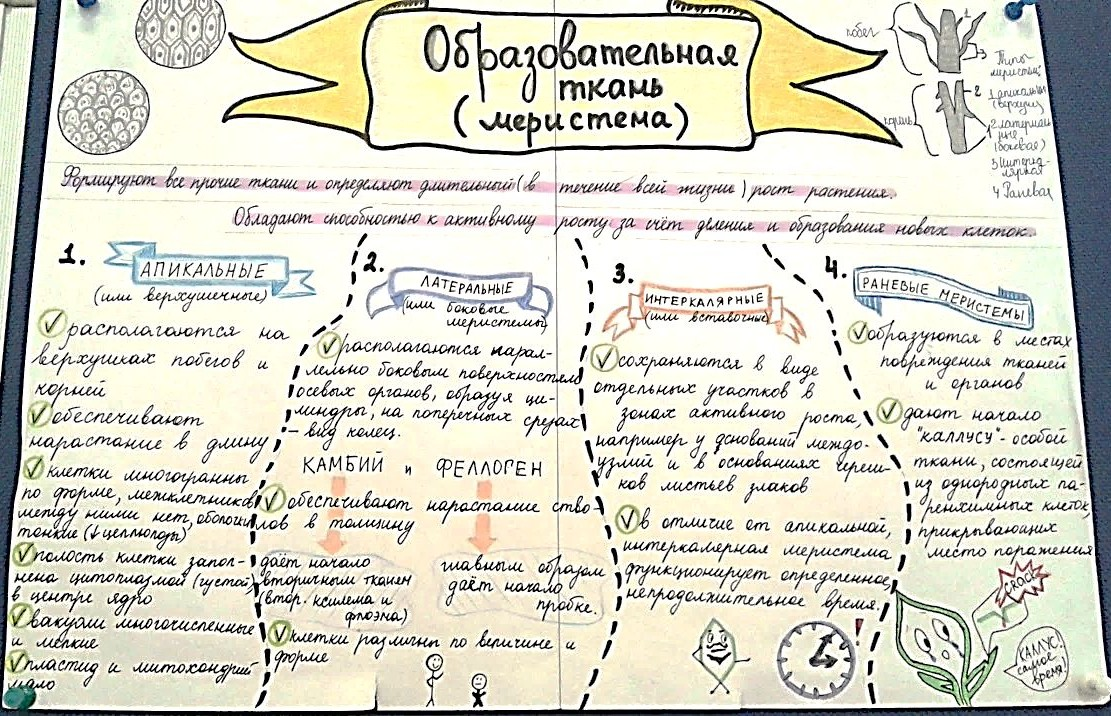 Образовательная
ткань
(меристема)
побег
1
3
2
корень
1
Типы
меристем:
1 апикальн
(верхуш)
2 латераль
ные
(боковая)
3 Интерка-
лярная
4 Раневая
Формируют все прочие ткани и определяют длительный (в течение всей жизни) рост растения.
Обладают способностью к активному росту за счёт деления и образования новых клеток.
1.
АПИКАЛЬНЫЕ
(или верхушечные)
располагаются на
верхушках побегов и
корней
обеспечивают
нарастание в длину
клетки многогранны
по форме, межклетников
между ними нет, оболочки
тонкие (↓целлюлозы)
полость клетки запол-
нена цитоплазмой (густой),
в центре ядро
вакуоли многочисленные
и мелкие
пластид и митохондрий
мало
2.
ЛАТЕРАЛЬНЫЕ
(или боковые
меристемы)
располагаются парал-
лельно боковым поверхностям
осевых органов, образуя ци-
линдры, на поперечных срезах
– вид колец.
КАМБИЙ и ФЕЛЛОГЕН
обеспечивают нарастание ство-
лов в толщину
даёт начало
вторичным тканям
(втор. ксилема и
флоэма)
главным образом
даёт начало
пробке.
клетки различны по величине и
форме
3.
ИНТЕРКАЛЯРНЫЕ
(или вставочные)
сохраняются в виде
отдельных участков в
зонах активного роста,
например у оснований междо-
узлий и в основаниях череш-
ков листьев злаков
в отличие от апикальной,
интеркалярная меристема
функционирует определенное,
непродолжительное время.
!
4.
РАНЕВЫЕ МЕРИСТЕМЫ
образуются в местах
повреждения тканей
и органов
дают начало
"каллусу"- особой
ткани, состоящей
из однородных па-
ренхимных клеток,
прикрывающих
место поражения
CRACK
КАЛЛУС!
самое
время!